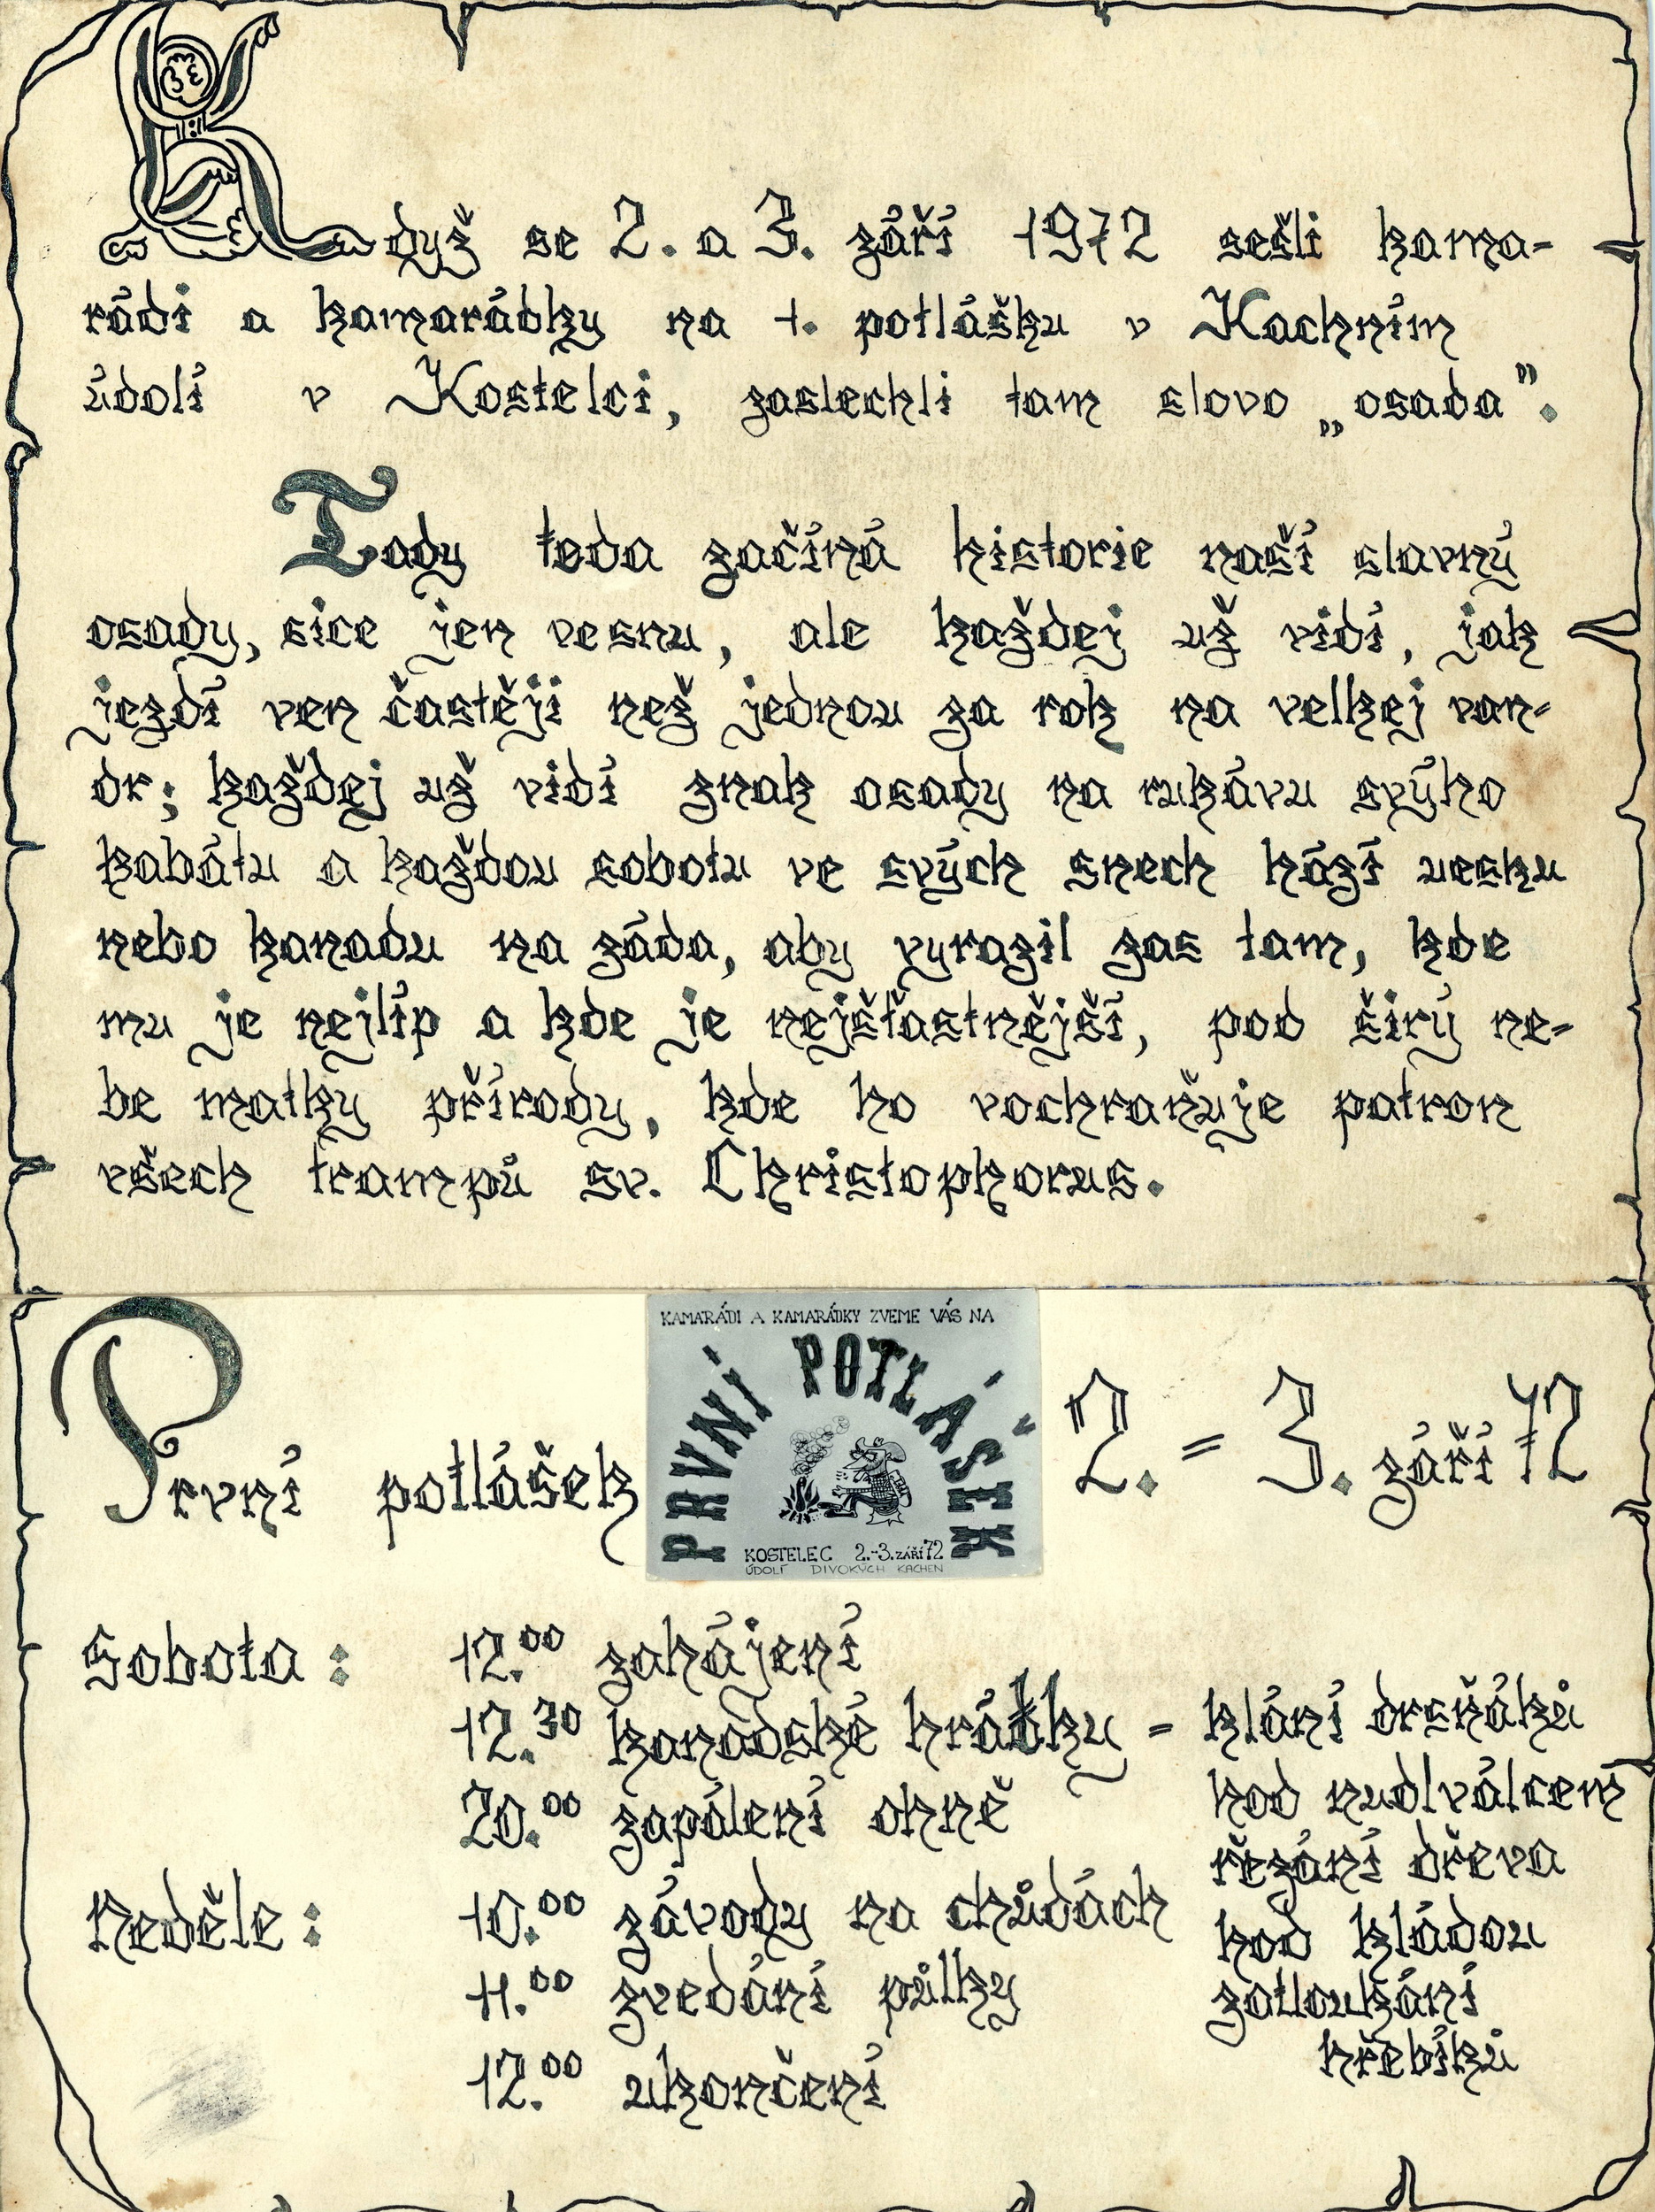 Když se 2. a 3. září 1972 sešli kama-
rádi a kamarádky na 1. potlášku v Kachním
údolí v Kostelci, zaslechli tam slovo „osada”.
Tady teda začíná historie naší slavný
osady, sice jen vesnu, ale každej už vidí, jak
jezdí ven častěji než jednou za rok na velkej van-
dr; každej už vidí znak osady na rukávu svýho
kabátu a každou sobotu ve svých snech hází uesku
nebo kanadu na záda, aby vyrazil zas tam, kde
mu je nejlíp a kde je nejšťastnější, pod širý ne-
be matky přírody, kde ho vochraňuje patron
všech trampů sv. Christophorus.
První potlášek
KAMARÁDI A KAMARÁDKY ZVEME VÁS NA
PRVNÍ POTLÁŠEK
KOSTELEC 2.-3. ZÁŘÍ 72
ÚDOLÍ DIVOKÝCH KACHEN
2. = 3. září 72
Sobota: 12.00 zahájení
12.30 kanadské hrátky - klání drsňáků
hod nudlválcem
řezání dřeva
hod kládou
zatloukání
hřebíků
20.00 zapálení ohně
Neděle: 10.00 závody na chůdách
11.00 zvedání půlky
12.00 ukončení